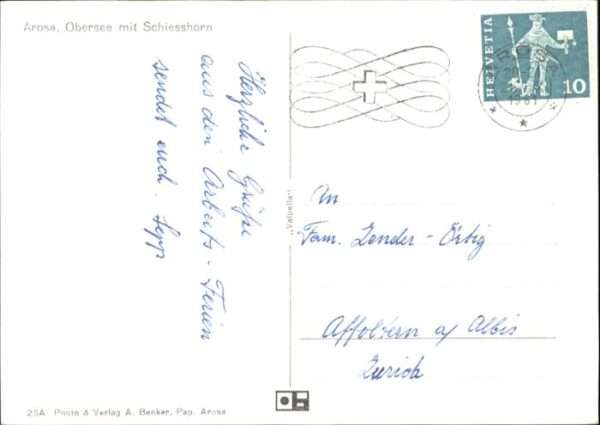 Arosa, Obersee mit Schiesshorn
Herzliche Grüsse
aus den Arbeits-Ferien
sendet euch. Sepp
HELVETIA
10
AROSA
"Valuella"
An
Fam. Zender-Örbig
Affoltern a/ Albis
Zürich
25A Photo & Verlag A. Benker, Pap. Arosa